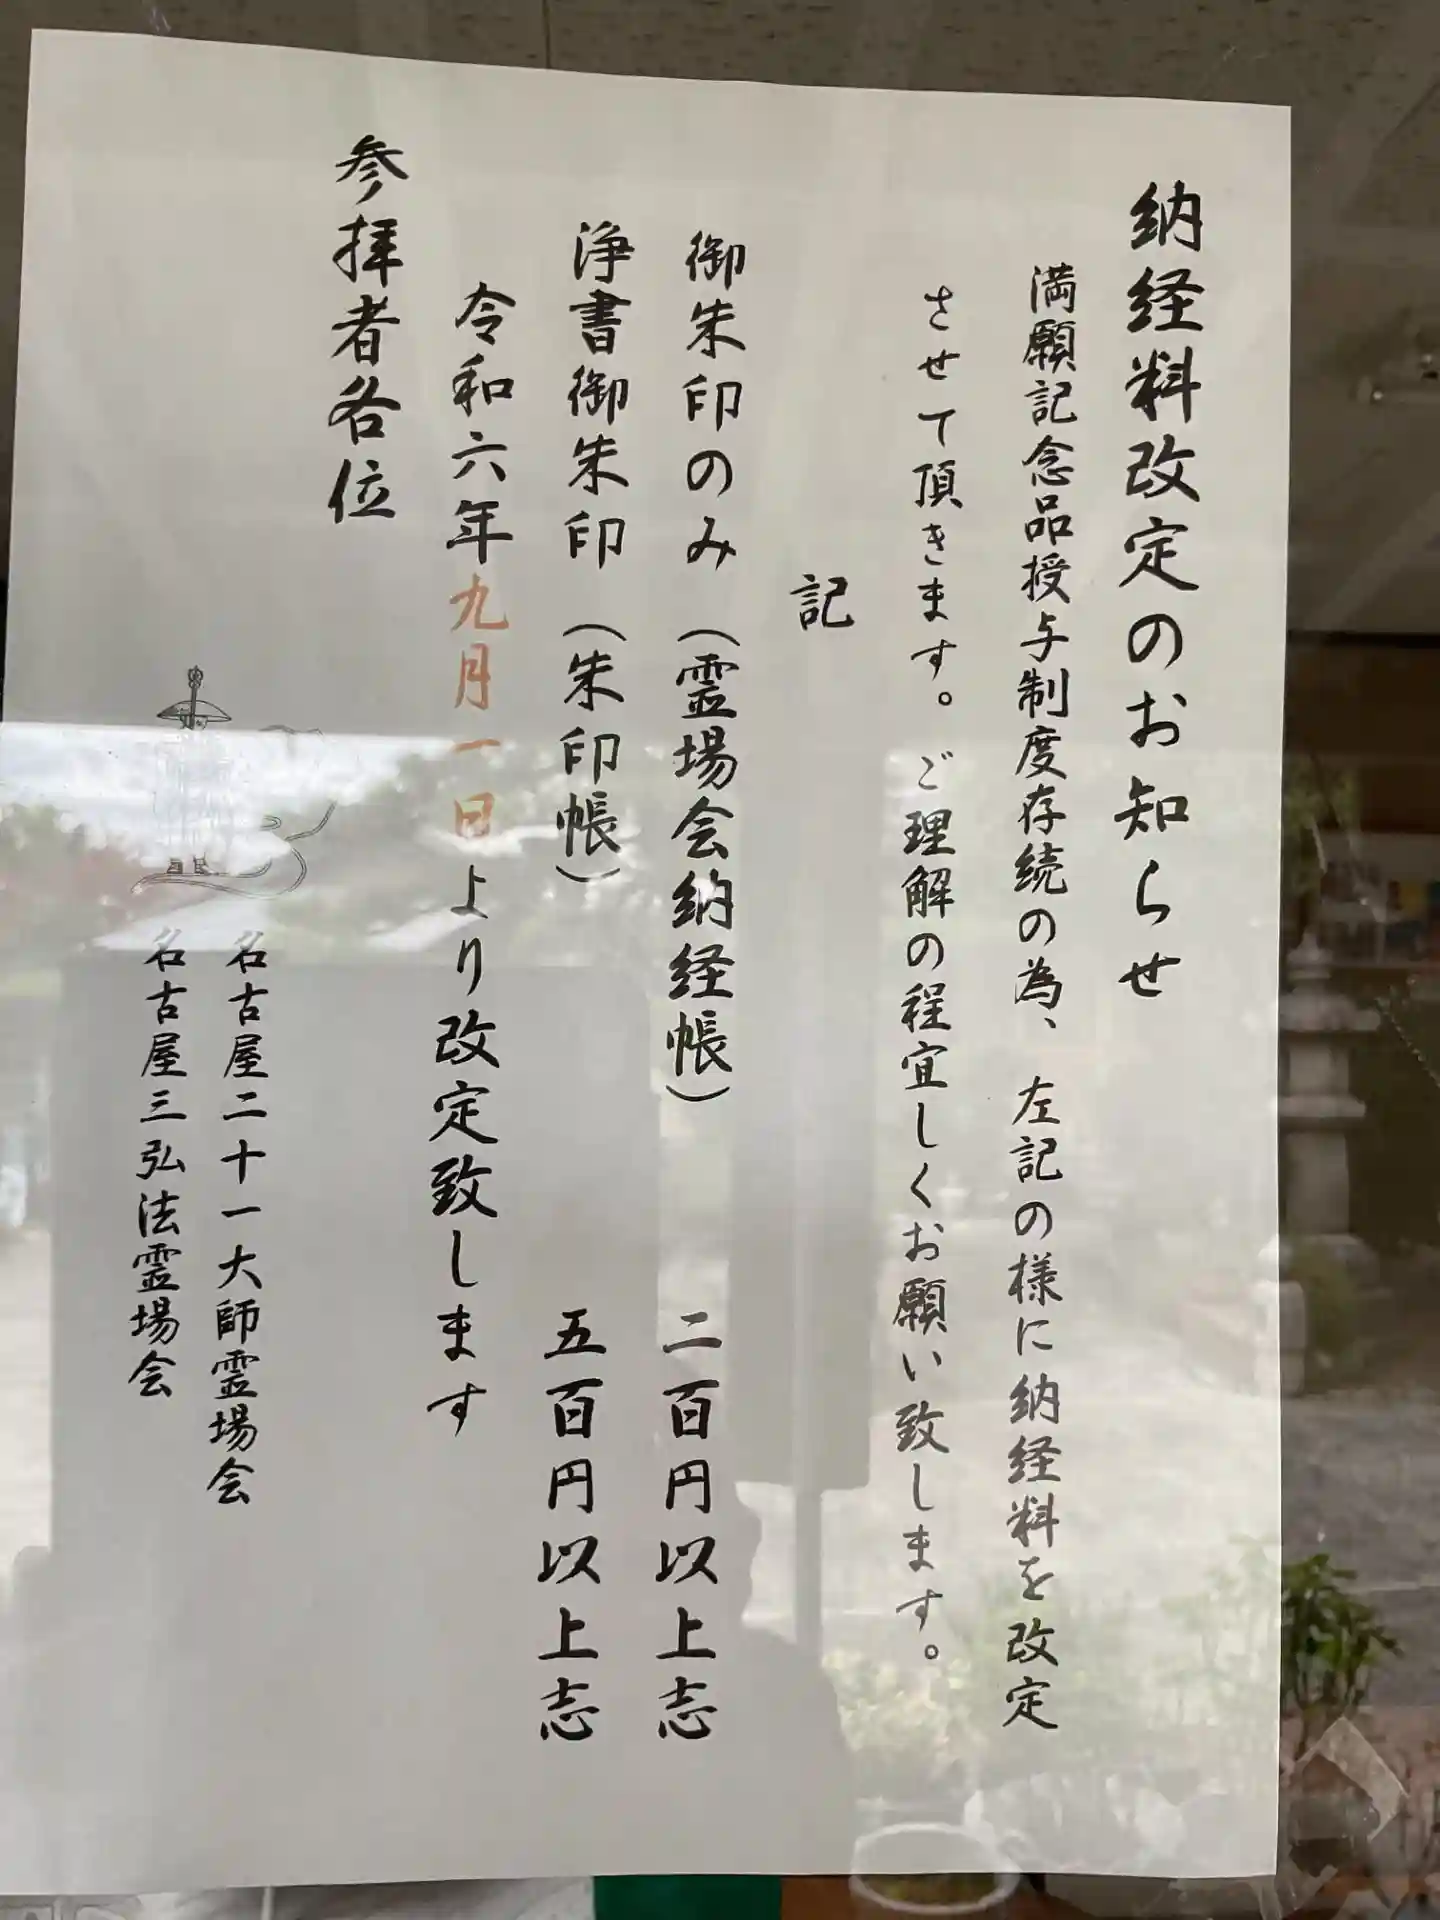 納経料改定のお知らせ
満願記念品授与制度存続の為、左記の様に納経料を改定
させて頂きます。ご理解の程宜しくお願い致します。
記
御朱印のみ（霊場会納経帳）　二百円以上志
浄書御朱印（朱印帳）　五百円以上志
令和六年九月一日より改定致します
参拝者各位
名古屋二十一大師霊場会
名古屋三弘法霊場会